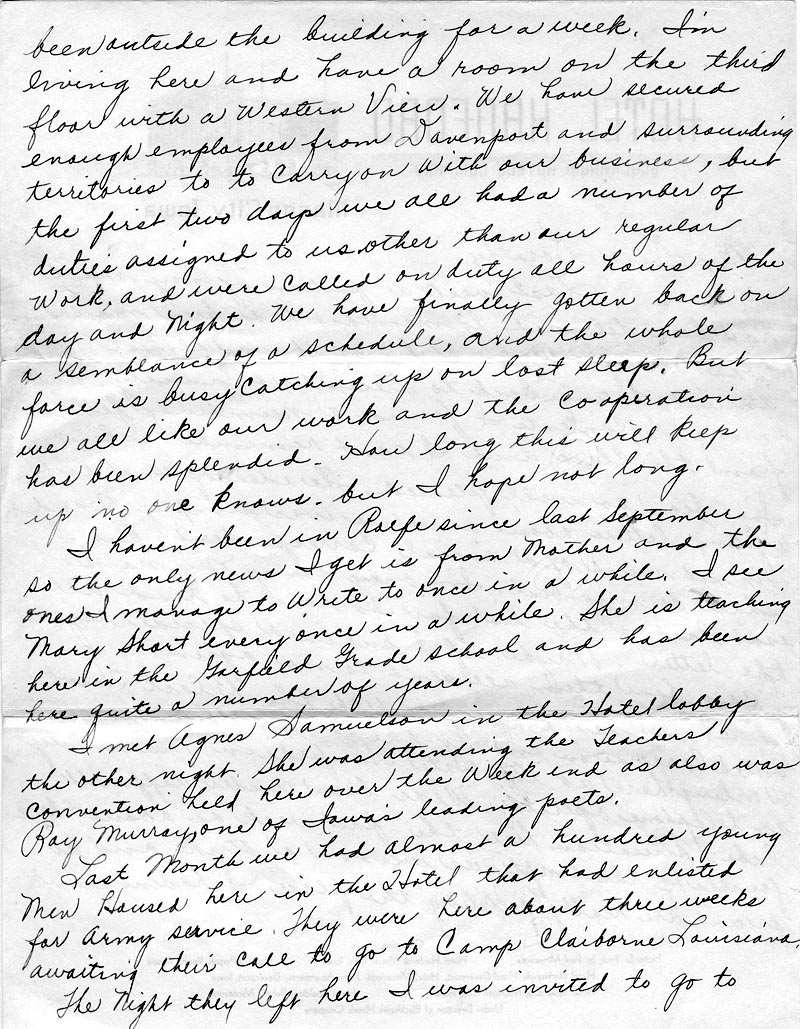 been outside the building for a week. I'm
living here and have a room on the third
floor with a Western View. We have secured
enough employees from Davenport and surrounding
territories to to carry on with our business, but
the first two days we all had a number of
duties assigned to us other than our regular
work, and were called on duty all hours of the
day and Night. We have finally gotten back on
a semblance of a schedule, and the whole
force is busy catching up on lost sleep. But
we all like our work and the cooperation
has been splendid. How long this will keep
up no one knows. but I hope not long.
I haven't been in Rolfe since last September
so the only news I get is from Mother and the
ones I manage to Write to once in a while. I see
Mary Short every once in a while. She is teaching
here in the Garfield Grade school and has been
here quite a number of years.
I met Agnes Samuelson in the Hotel lobby
the other night. She was attending the Teachers
convention held here over the Week end as also was
Ray Murray, one of Iowa's leading poets.
Last Month we had almost a hundred young
Men Housed here in the Hotel that had enlisted
for Army service. They were here about three weeks
awaiting their call to go to Camp Claiborne Louisiana.
The Night they left here I was invited to go to